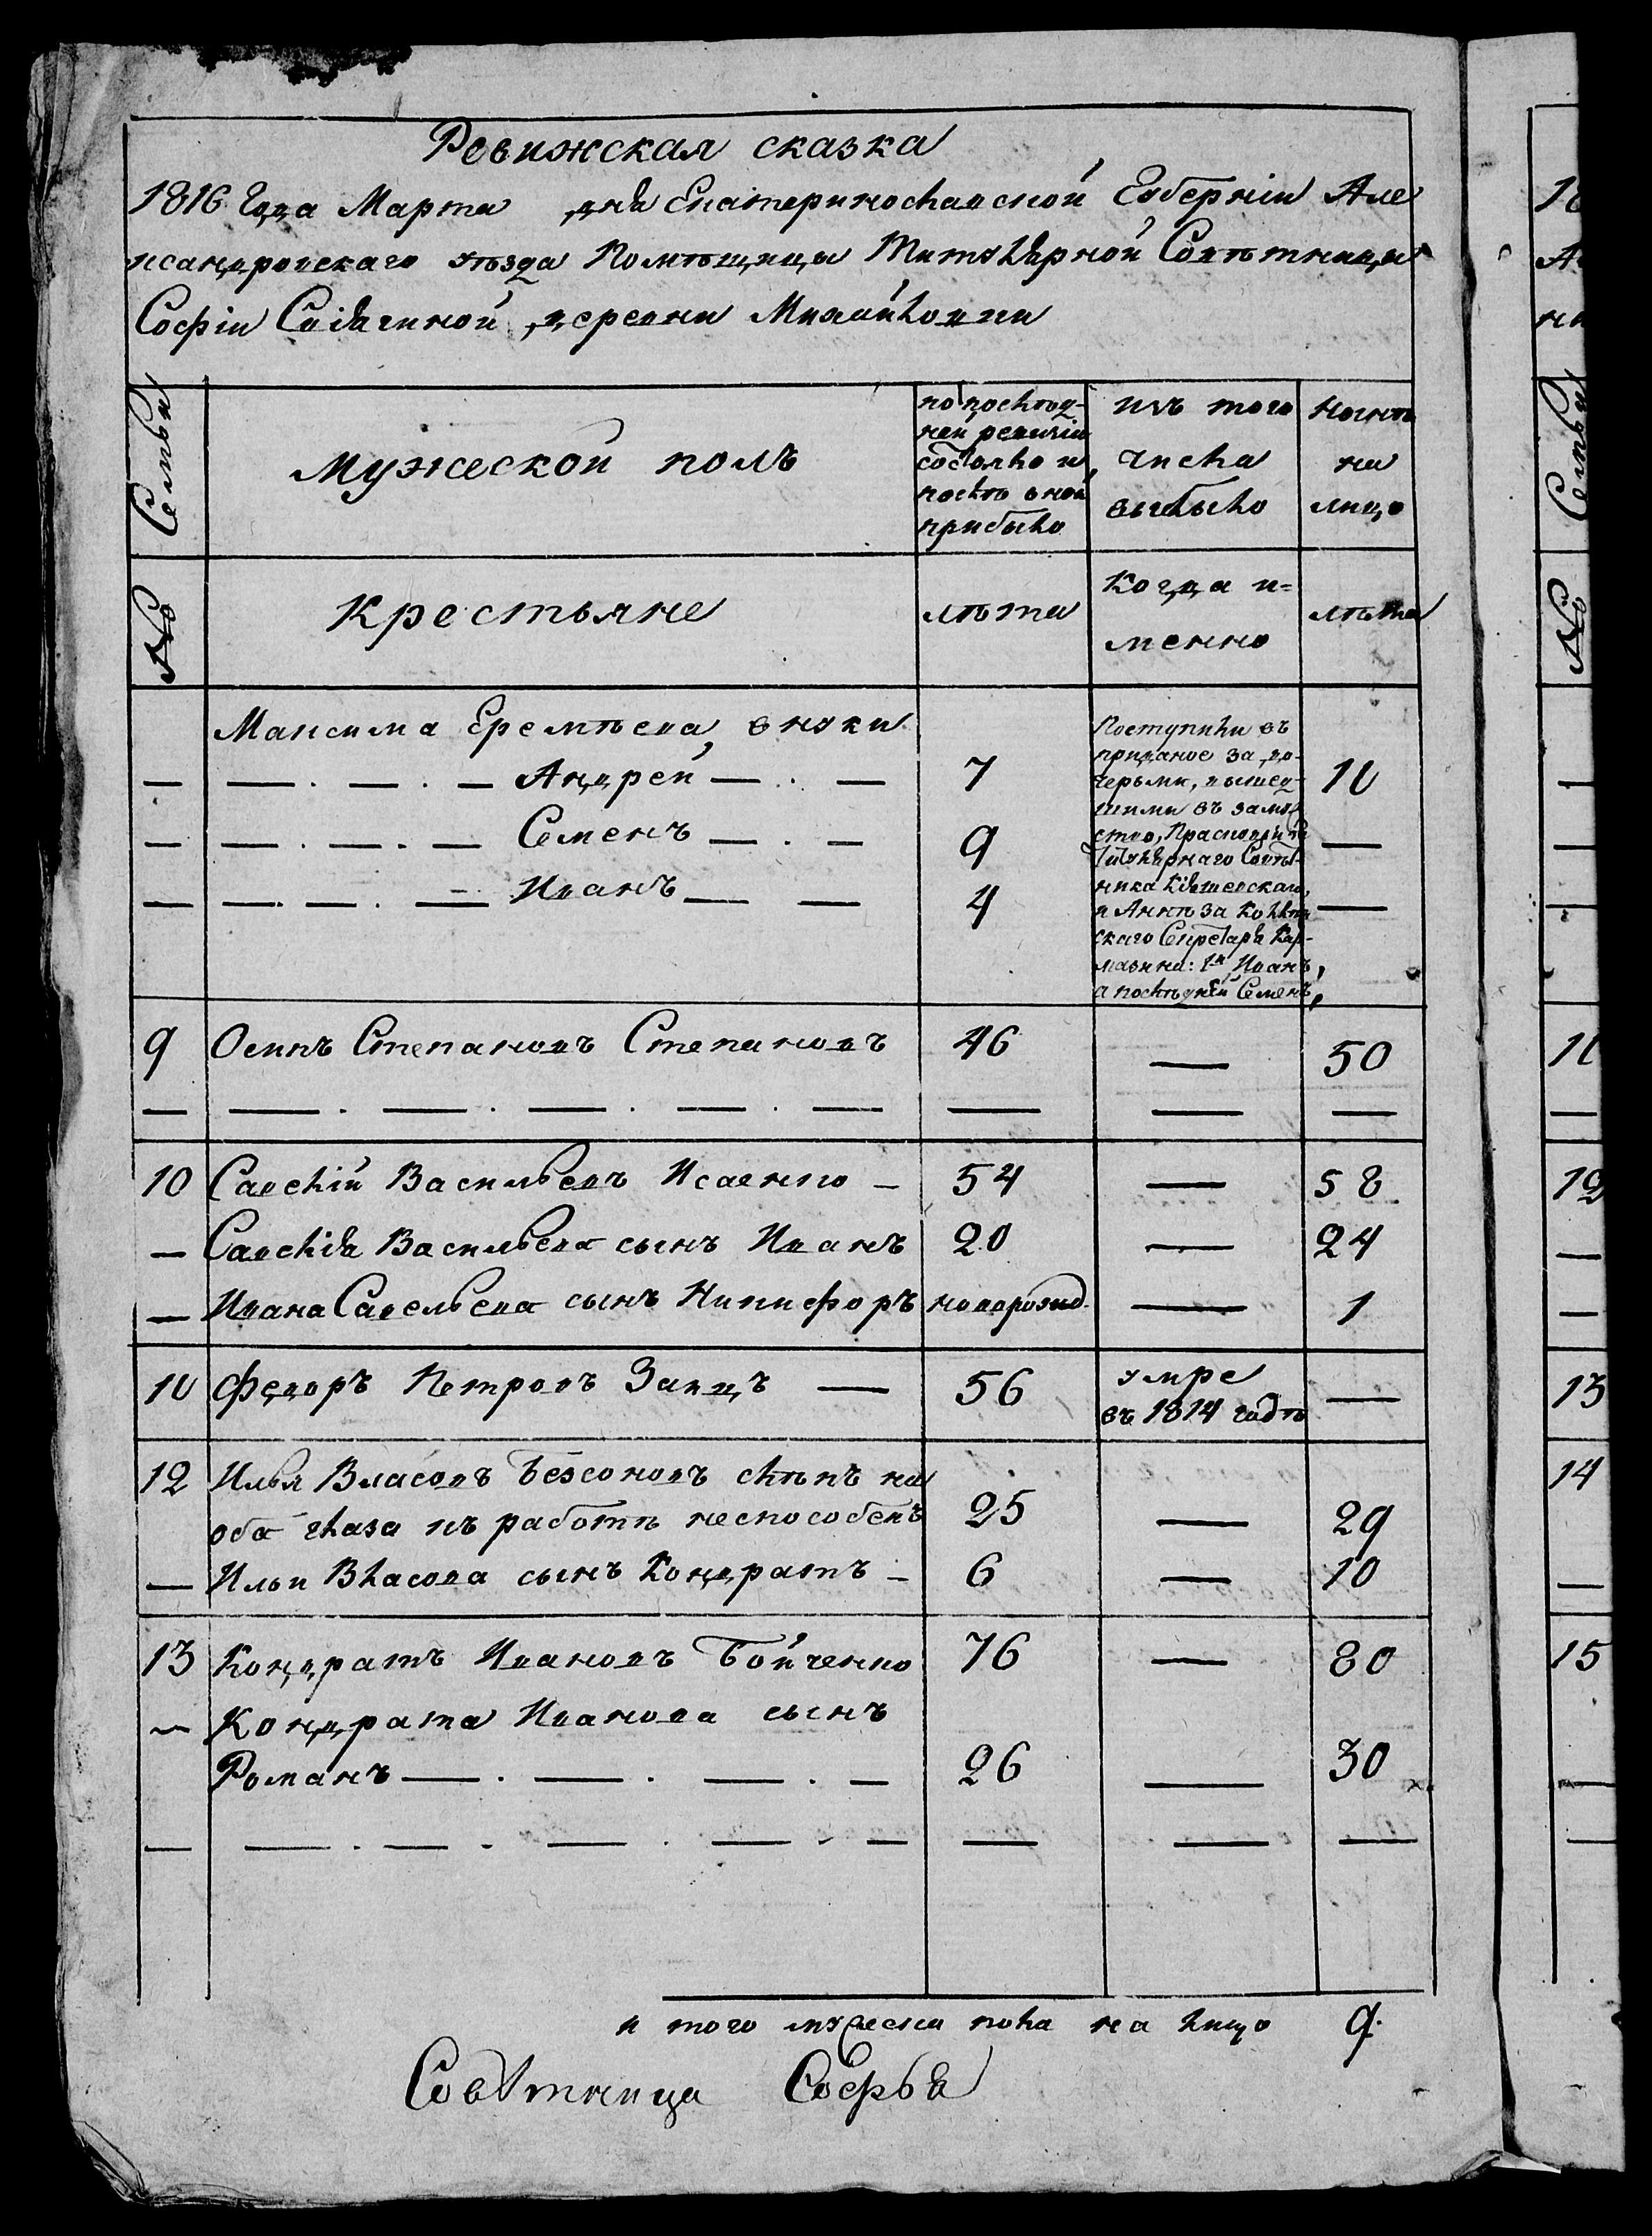 Ревижская сказка
1816 года Марта дня Екатеринославской Губерніи Але
ксандровскаго уѣзда Помѣщицы Титулярной Совѣтницы
Софіи деревни Михайловки
Семьи
Мужеской полъ
по послѣд-
ней ревизіи
состояло и
послѣ оной
прибыло
изъ того
числа
выбыло
Нынѣ
на
лицо
№
Крестьяне
лѣта
Когда и-
менно
лѣта
Максима Еремѣева внуки
— — . — . — Андрей — . — 7 10
— — . — . — Семенъ — . — 9 —
— — . — . — Иванъ — — 4 —
Поступили въ
приданое за до-
черьми, вышед-
шими въ замуж
ство,
Титулярнаго Совѣт-
ника
и Аннѣ за Колле
скаго Секретаря Кар-
мазина: 1й Иванъ,
а послѣдней Семенъ,
9 Осипъ Степановъ Степановъ 46 — 50
— — . — . — . — . — — — —
10 Савелій Васильевъ Исаенко — 54 — 58
— Савелія Васильева сынъ Иванъ 20 — 24
— Ивана Савельева сынъ Никифоръ новорожд. — 1
10 Федоръ Петровъ Заицъ — 56 умре —
въ 1814 годѣ
12 Илья Власовъ Безсоновъ слѣпъ на
оба глаза къ работѣ неспособенъ 25 — 29
— Ильи Власова сынъ Кондратъ — 6 — 10
13 Кондратъ Ивановъ Бойченко 76 — 80
— Кондрата Иванова сынъ
Романъ — . — . — . — 26 — 30
— — . — . — . — . — — — —
и того мужеска пола на лицо 9.
Совѣтница Софья
18
А
ни
Семьи
№
—
—
—
11
—
12
—
—
13
14
—
15
—
—